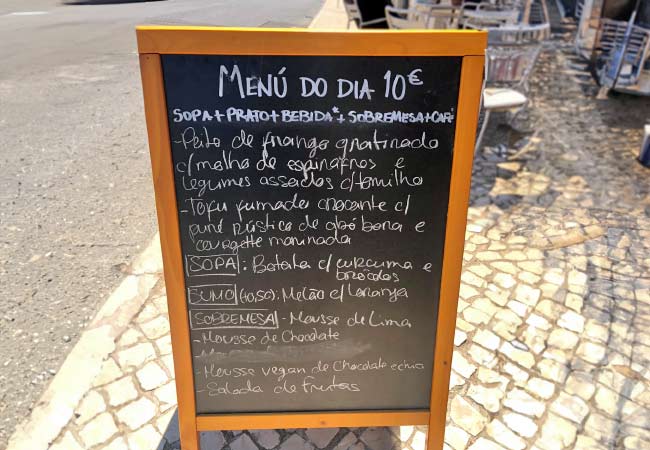 MENÚ DO DIA 10€
SOPA+PRATO+BEBIDA*+SOBREMESA+CAFÉ
-Peito de frango gratinado
c/molho de espinafres e
legumes assados c/tomilho
-Tofu fumado crocante c/
puré rústico de abóbora e
courgette marinada
SOPA: Batata c/ curcuma e
brócolos
SUMO (+0,50): Melão c/ laranja
SOBREMESA - Mousse de Lima
- Mousse de Chocolate
- Mousse vegan de Chocolate
- Salada de frutas